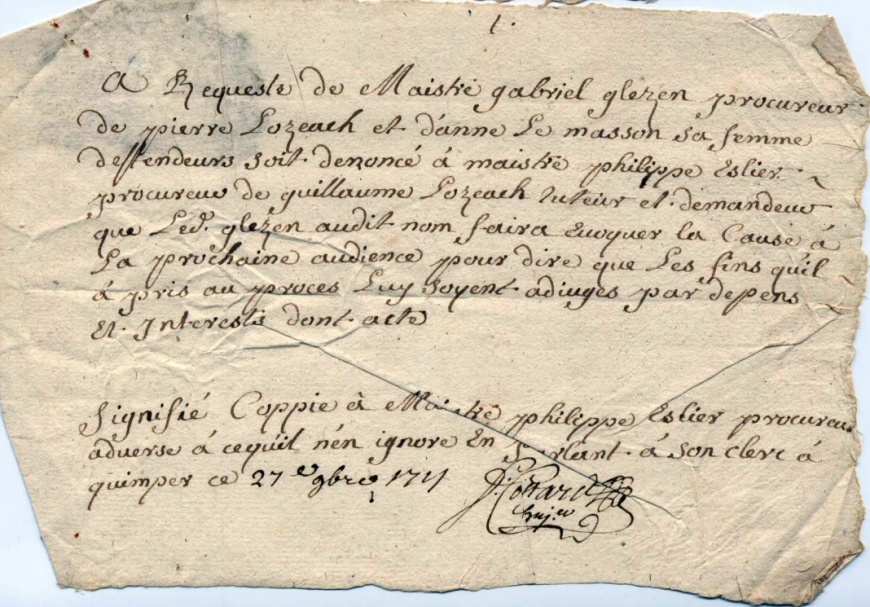 A Requeste de Maistre gabriel glezen procureur
de pierre Lozeach et d'anne Le masson sa femme
deffendeurs soit denoncé á maistre philippe Eslier
procureur de guillaume Lozeach tuteur et demandeur
que Led. glezen audit nom faira Evoquer la Cause á
La prochaine audience pour dire que Les fins qu'il
á pris au proces Luy soyent adiuges par depens
Et Interests dont acte
Signifié Coppie á Maistre philippe Eslier procureur
adverse á cequil n'en ignore En parlant á son clerc á
quimper ce 27e 9bre 1711